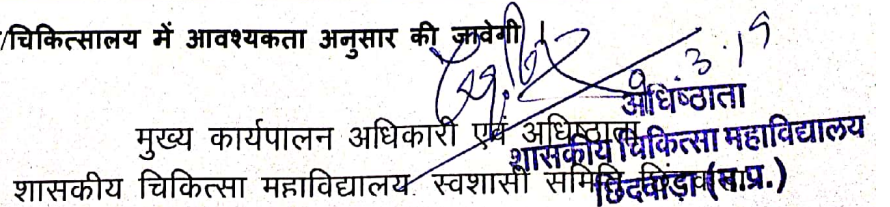 /चिकित्सालय में आवश्यकता अनुसार की जावेगी ।
मुख्य कार्यपालन अधिकारी एवं अधिष्ठाता
शासकीय चिकित्सा महाविद्यालय स्वशासी समिति
अधिष्ठाता
शासकीय चिकित्सा महाविद्यालय
छिंदवाड़ा (म.प्र.)